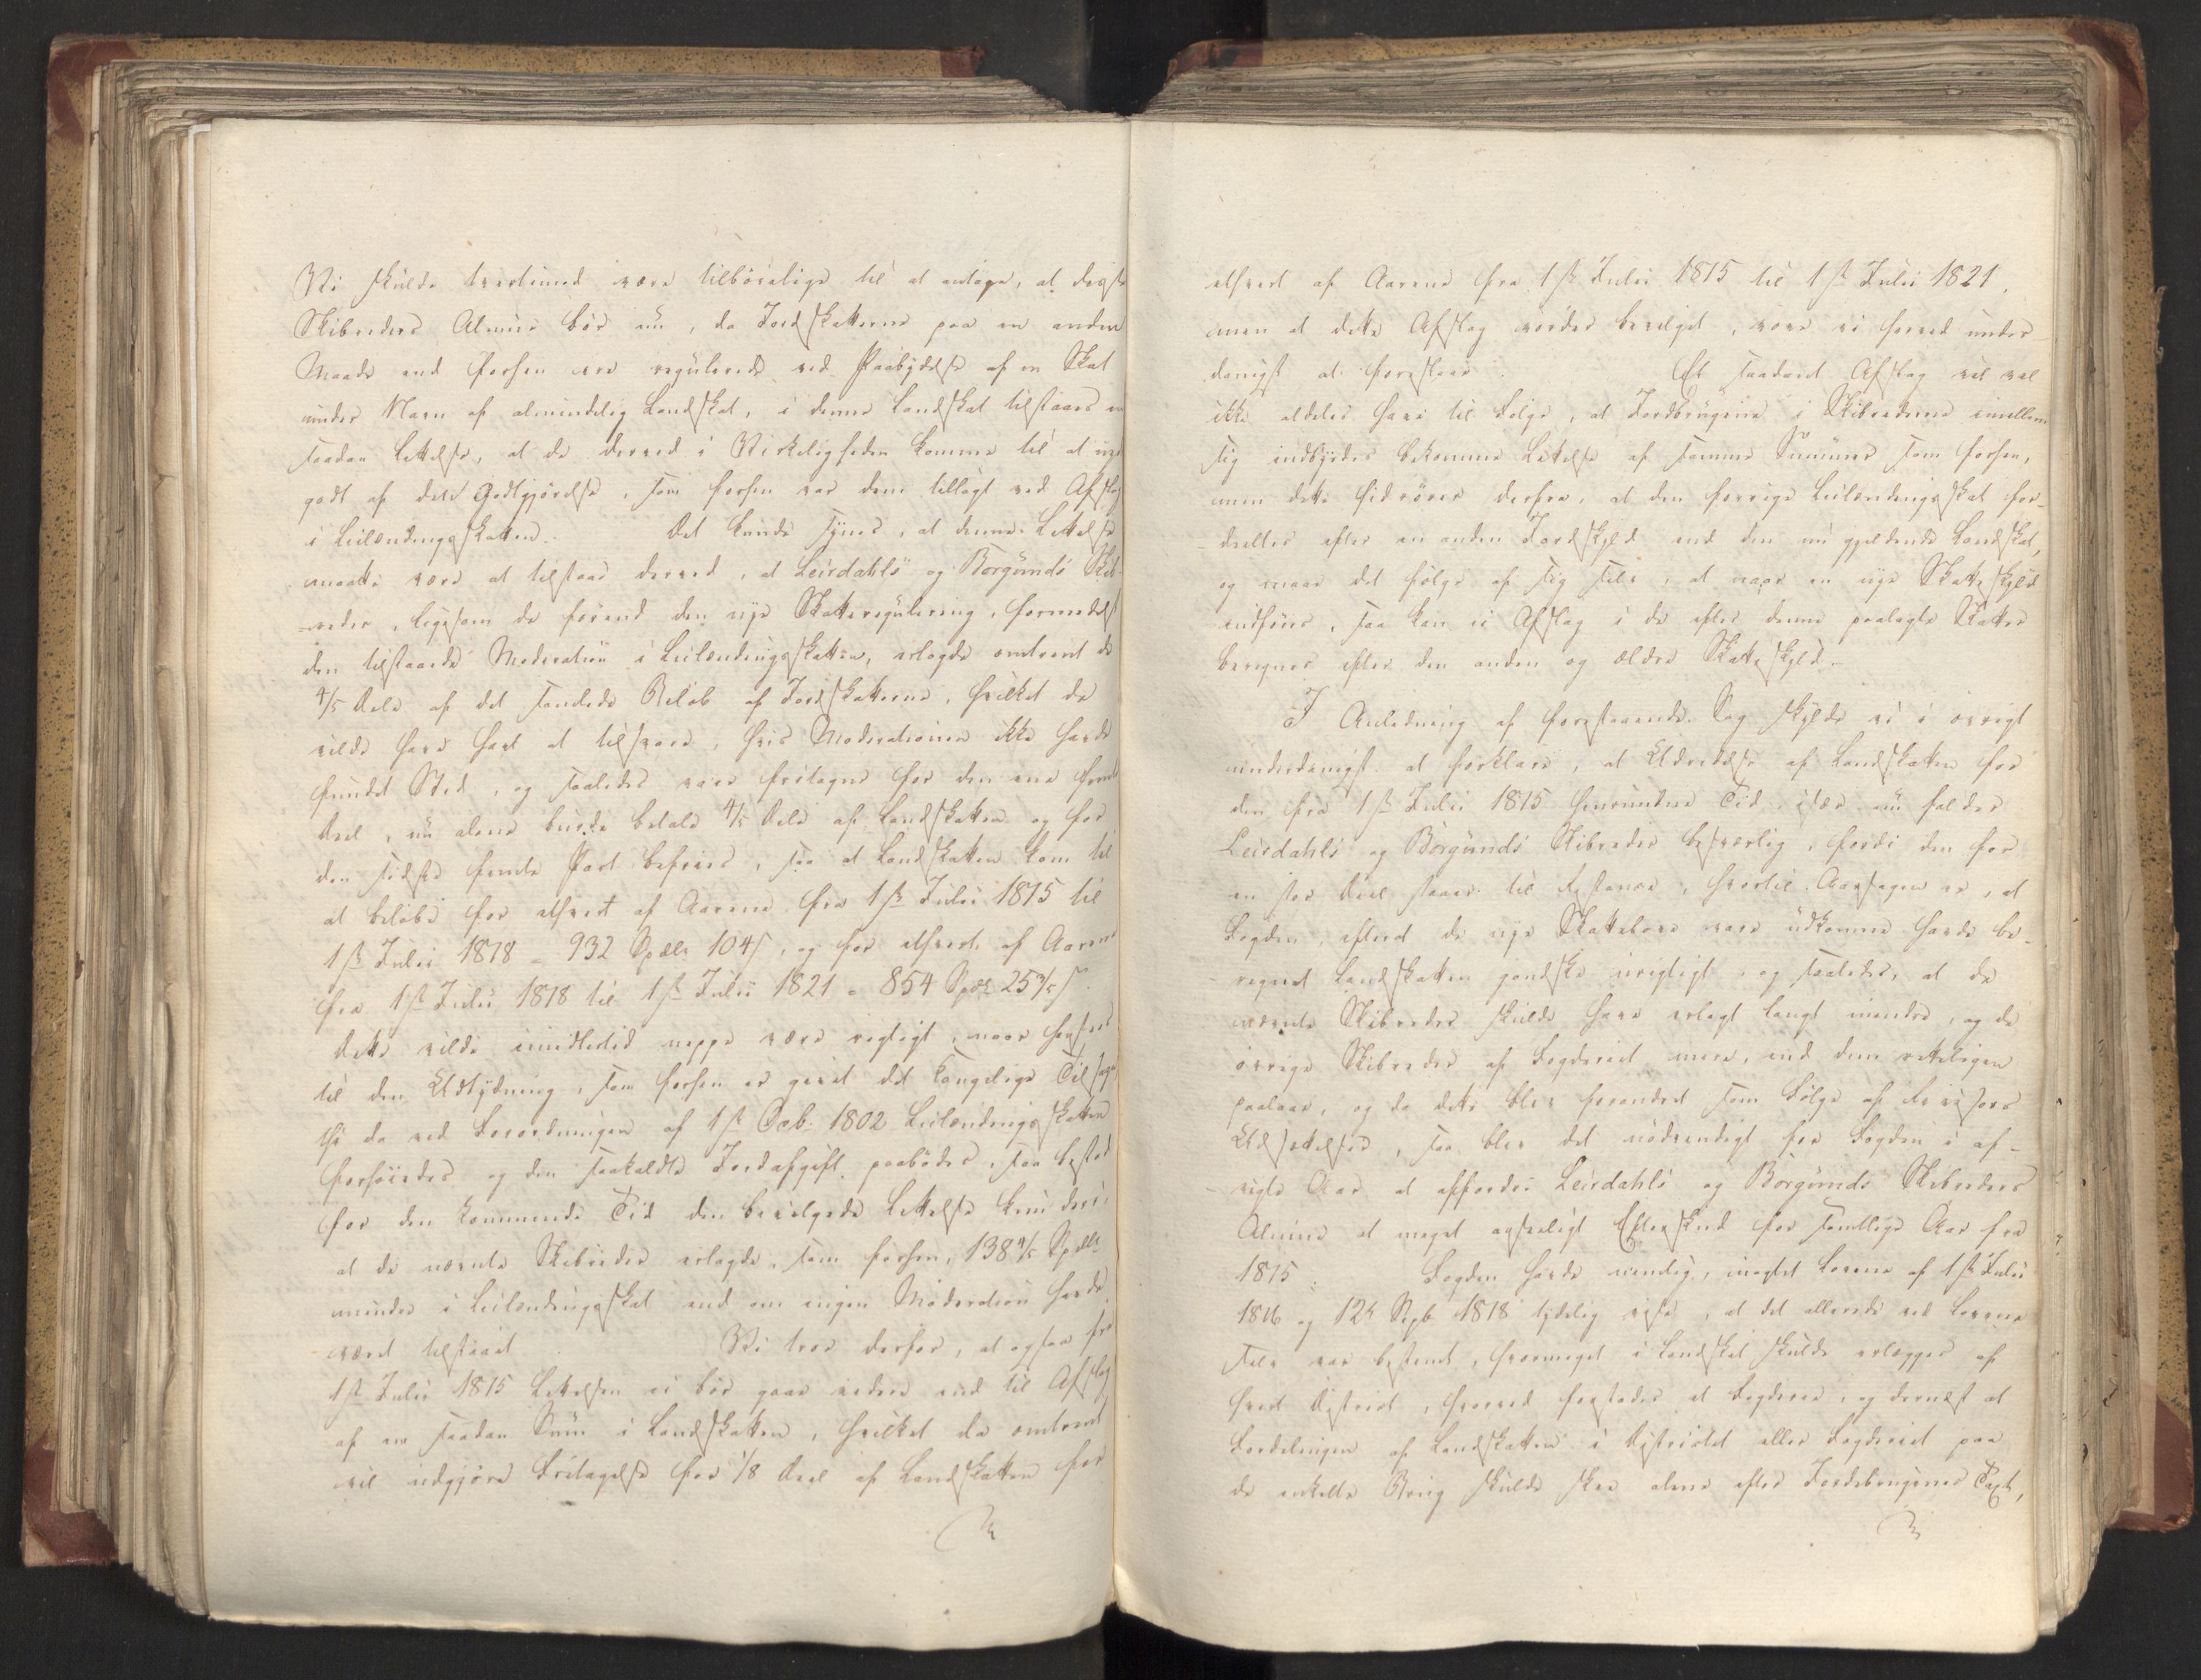 Vi skulde tvertimod være tilbøielige til at antage, at disse
Skibreders Almue bør nu, da Jordskatterne paa en anden
Maade end forhen ere regulerede ved Paabydelse af en Skat
under Navn af almindelig Landskat, i denne Landskat tilstaaes en
saadan Lettelse, at de derved i Virkeligheden komme til at nyde
godt af den Godtgjørelse, som forhen var dem tillagt ved Afslag
i Leilendingsskatten. Det kunde synes, at denne Lettelse
maatte være at tilstaae derved, at Leirdahls og Borgunds Skib-
reder, ligesom de forend den nye Skatteregulering, formedelst
den tilstaaede Moderation i Leilendingsskatten, erlagde omtrent de
4/5 Dele af det samlede Beløb af Jordskatterne, hvilket de
vilde have havt at tilsvare, hvis Moderationen ikke havde
fundet Sted, og saaledes vare fritagne for den ene femte
Deel, nu alene burde betale 4/5 Dele af Landskatten og for
den sidste femte Part befries, saa at Landskatten kom til
at beløbe for ethvert af Aarene fra 1ste Julii 1815 til
1ste Julii 1818 = 932 Spdlr 104 s, og for ethvert af Aarene
fra 1ste Julii 1818 til 1ste Julii 1821 = 854 Spdlr 25 3/5 s.
Dette vilde imidlertid neppe være rigtigt, naar henses
til den Udtydning, som forhen er givet det Kongelige Tilsagn
thi da ved Forordningen af 1ste Octb: 1802 Leilendingsskatten
forhøiedes og den saakaldte Jordafgift paabødes, saa bestod
for den kommende Tid den bevilgede Lettelse kun deri,
at de nævnte Skibreder erlagde, som forhen, 138 4/5 Spdlr
mindre i Leilendingsskat end om ingen Moderation havde
været tilstaaet. Vi troe derfor, at ogsaa fra
1ste Julii 1815 Lettelsen ei bør gaae videre end til Afslag
af en saadan Sum i Landskatten, hvilket da omtrent
vil udgjøre Fritagelse for 1/8 Deel af Landskatten for
ethvert af Aarene fra 1ste Julii 1815 til 1ste Julii 1821.
men at dette Afslag vorder bevilget, vove vi herved under-
danigst at foreslaae. Et saadant Afslag vil vel
ikke aldeles have til Følge, at Jordbrugerne i Skibrederne imellem
sig indbyrdes bekomme Lettelse af samme Summer som forhen,
men dette hidrører derfra, at den forrige Leilendingsskat for-
deeltes efter en anden Jordskyld end den nu gjeldende Landskat,
og maae det følge af sig selv, at naar en nye Skatteskyld
indføres, saa kan ei Afslag i de efter denne paalagte Skatter
beregnes efter den anden og ældre Skatteskyld.
I Anledning af forestaaende Sag skylde vi i øvrigt
underdanigst at forklare, at Udredelse af Landskatten for
den fra 1ste Julii 1815 henrundne Tid, især nu falder
Leirdahls og Borgunds Skibreder besværlig, fordi den for
en stor Deel staaer til Restance, hvortil Aarsagen er, at
Fogden, efterat de nye Skattelove vare udkomne havde be-
regnet Landskatten gandske urigtigt, og saaledes, at de
nævnte Skibreder skulde have erlagt langt mindre, og de
øvrige Skibreder af Fogderiet mere, end dem retteligen
paalaae, og da dette blev forandret som Følge af Revisors
Udsættelser, saa blev det nødvendigt for Fogden i af-
vigte Aar at affordre Leirdahls og Borgunds Skibreders
Almue et meget anseeligt Efterskud for samtlige Aar fra
1815. Fogden havde nemlig, uagtet Lovene af 1ste Julii
1816 og 12te Septb 1818 tydelig viste, at det allerede ved Lovene
selv var bestemt, hvormeget i Landskat skulde erlægges af
hvert District, hvorved forstodes et Fogderie, og dernæst at
Fordelingen af Landskatten i Districtet eller Fogderiet paa
de enkelte Brug skulde skee alene efter Jordebrugenes Taxt,